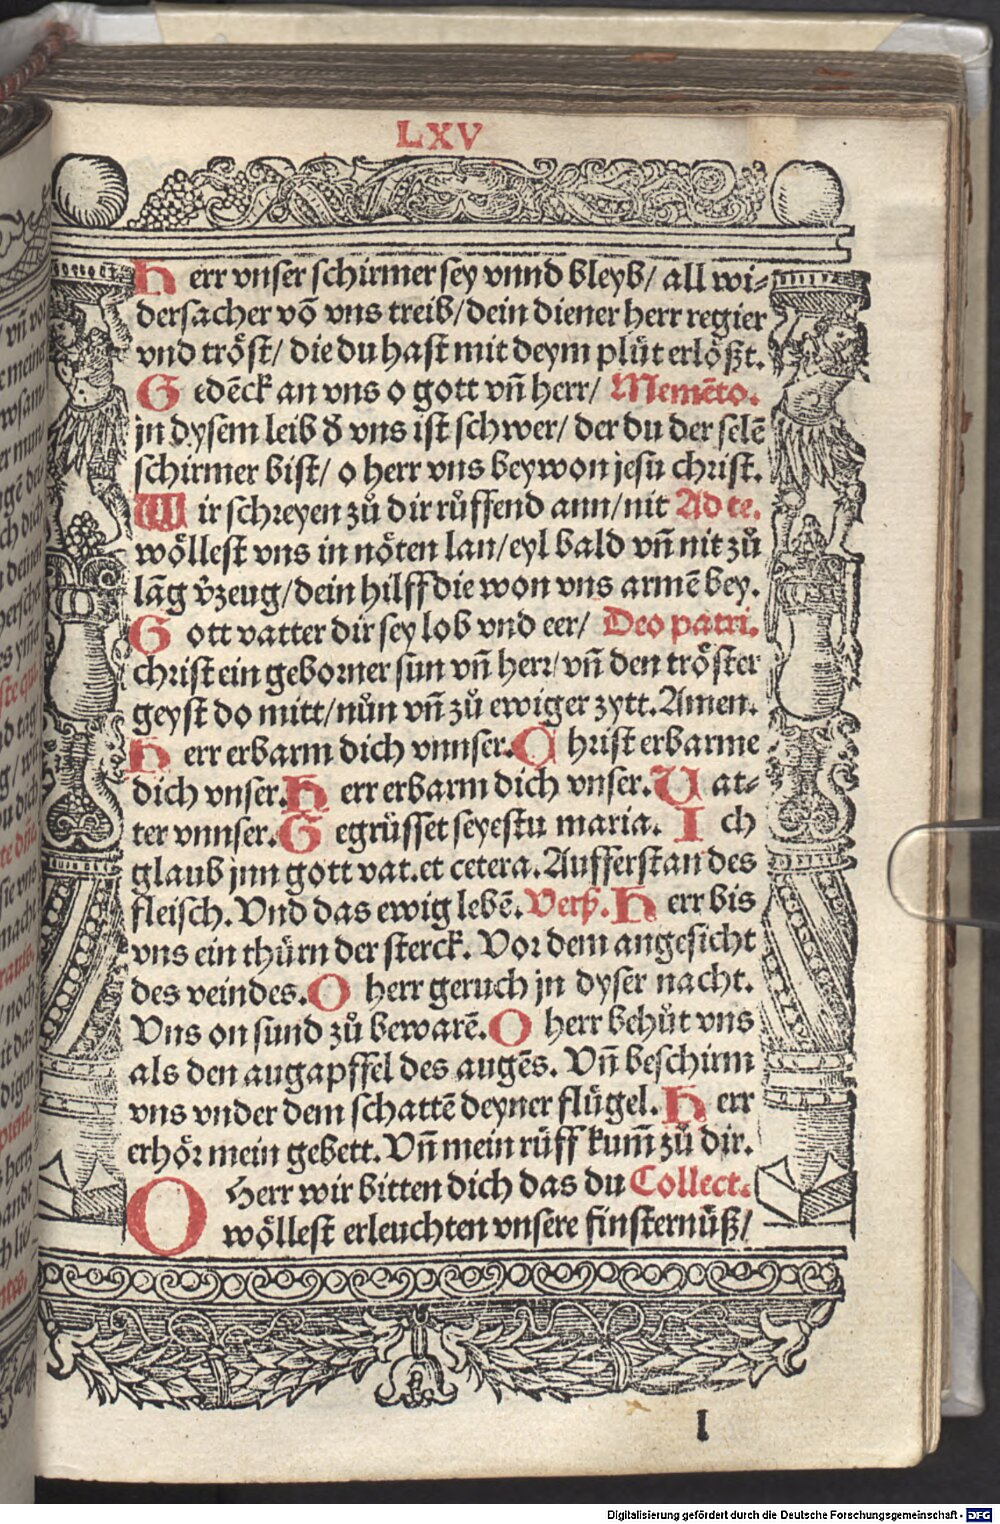 LXV
Herr vnser schirmer sey vnnd bleyb/ all wi⸗
dersacher võ vns treib/dein diener herr regier
vnd tröst/ die du hast mit deym plůt erlößt.
Gedẽck an vns o gott vñ herr/ Memẽto.
jn dysem leib d̕ vns ist schwer/ der du der selẽ
schirmer bist/ o herr vns beywon jesu christ.
Wir schreyen zů dir růffend ann/nit Ad te.
wöllest vns in nöten lan/eyl bald vñ nit zů
lãg v̈zeug/dein hilff die won vns armẽ bey.
Gott vatter dir sey lob vnd eer/ Deo patri.
christ ein geborner sun vñ herr/vñ den tröster
geyst do mitt/nůn vñ zů ewiger zytt. Amen.
Herr erbarm dich vnnser. Christ erbarme
dich vnser. Herr erbarm dich vnser. Vat⸗
ter vnnser. Gegrüsset seyestu maria. Ich
glaub jnn gott vat. et cetera. Aufferstan des
fleisch. Vnd das ewig lebẽ. Verß. Herr bis
vns ein thürn der sterck. Vor dem angesicht
des veindes. O herr geruch jn dyser nacht.
Vns on sund zů bewarẽ. O herr behüt vns
als den augapffel des augẽs. Vñ beschirm
vns vnder dem schattẽ deyner flügel. Herr
erhör mein gebett. Vñ mein rüff kum̃ zů dir.
O Herr wir bitten dich das du Collect.
wöllest erleuchten vnsere finsternüß/
l
Digitalisierung gefördert durch die Deutsche Forschungsgemeinschaft - DFG